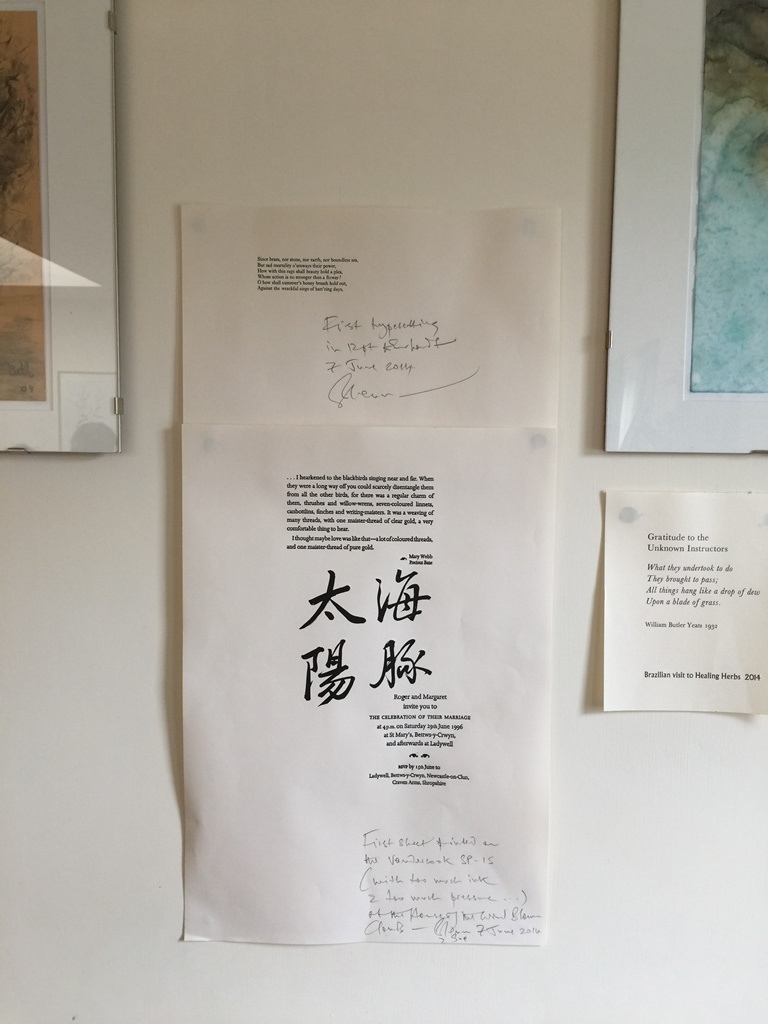 Since brass, nor stone, nor earth, nor boundless sea,
But sad mortality o'ersways their power,
How with this rage shall beauty hold a plea,
Whose action is no stronger than a flower?
O how shall summer's honey breath hold out,
Against the wreckful siege of batt'ring days,
First typesetting
in 12pt
7 June 2014
Glenn
. . . I hearkened to the blackbirds singing near and far. When
they were a long way off you could scarcely disentangle them
from all the other birds, for there was a regular charm of
them, thrushes and willow-wrens, seven-coloured linnets,
canbottlins, finches and writing-maisters. It was a weaving of
many threads, with one maister-thread of clear gold, a very
comfortable thing to hear.
I thought maybe love was like that—a lot of coloured threads,
and one maister-thread of pure gold.
Mary Webb
Precious Bane
海豚
太陽
Roger and Margaret
invite you to
THE CELEBRATION OF THEIR MARRIAGE
at 4 p.m. on Saturday 29th June 1996
at St Mary's, Bettws-y-Crwyn,
and afterwards at Ladywell
RSVP by 15th June to
Ladywell, Bettws-y-Crwyn, Newcastle-on-Clun,
Craven Arms, Shropshire
First sheet printed on
the Vandercook SP-15
(with too much ink
& too much pressure ...)
at the House of the Wind Blown
Clouds — Glenn 7 June 2014
Gratitude to the
Unknown Instructors
What they undertook to do
They brought to pass;
All things hang like a drop of dew
Upon a blade of grass.
William Butler Yeats 1932
Brazilian visit to Healing Herbs 2014